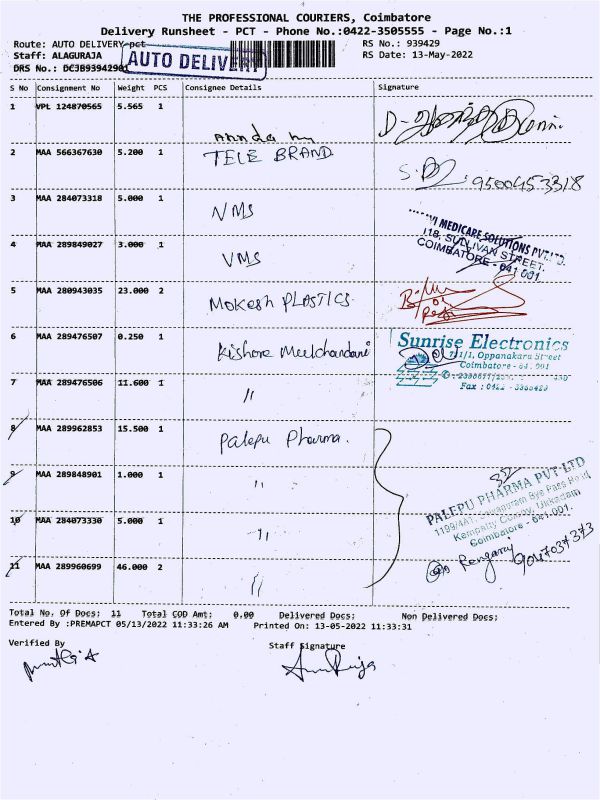 THE PROFESSIONAL COURIERS, Coimbatore
Delivery Runsheet - PCT - Phone No.:0422-3505555 - Page No.:1
Route: AUTO DELIVERY-pct
RS No.: 939429
Staff: ALAGURAJA
RS Date: 13-May-2022
DRS No.: DCJB93942901
AUTO DELIVERY
S No Consignment No Weight PCS Consignee Details Signature
1 VPL 124870565 5.565 1
2 MAA 566367630 5.200 1 TELE BRAND
9500453318
3 MAA 284073318 5.000 1 NMS
MEDICARE SOLUTIONS PVT.LTD.
118, SULLIVAN STREET,
COIMBATORE - 641 001
4 MAA 289849027 3.000 1 VMS
5 MAA 280943035 23.000 2 Mokesh PLASTICS
6 MAA 289476507 0.250 1 Kishore Mulchandani
Sunrise Electronics
Oppanakara Street
Coimbatore - 641 001
7 MAA 289476506 11.600 1 "
Fax : 0422 -
8 MAA 289962853 15.500 1 Palepu Pharma.
9 MAA 289848901 1.000 1 "
PALEPU PHARMA PVT LTD
Bye Pass Road
Ukkadam
Coimbatore - 641.001.
10 MAA 284073330 5.000 1 "
Rengaraj
9047037373
11 MAA 289960699 46.000 2 "
Total No. Of Docs: 11 Total COD Amt: 0.00 Delivered Docs: Non Delivered Docs:
Entered By :PREMAPCT 05/13/2022 11:33:26 AM Printed On: 13-05-2022 11:33:31
Verified By
Staff Signature